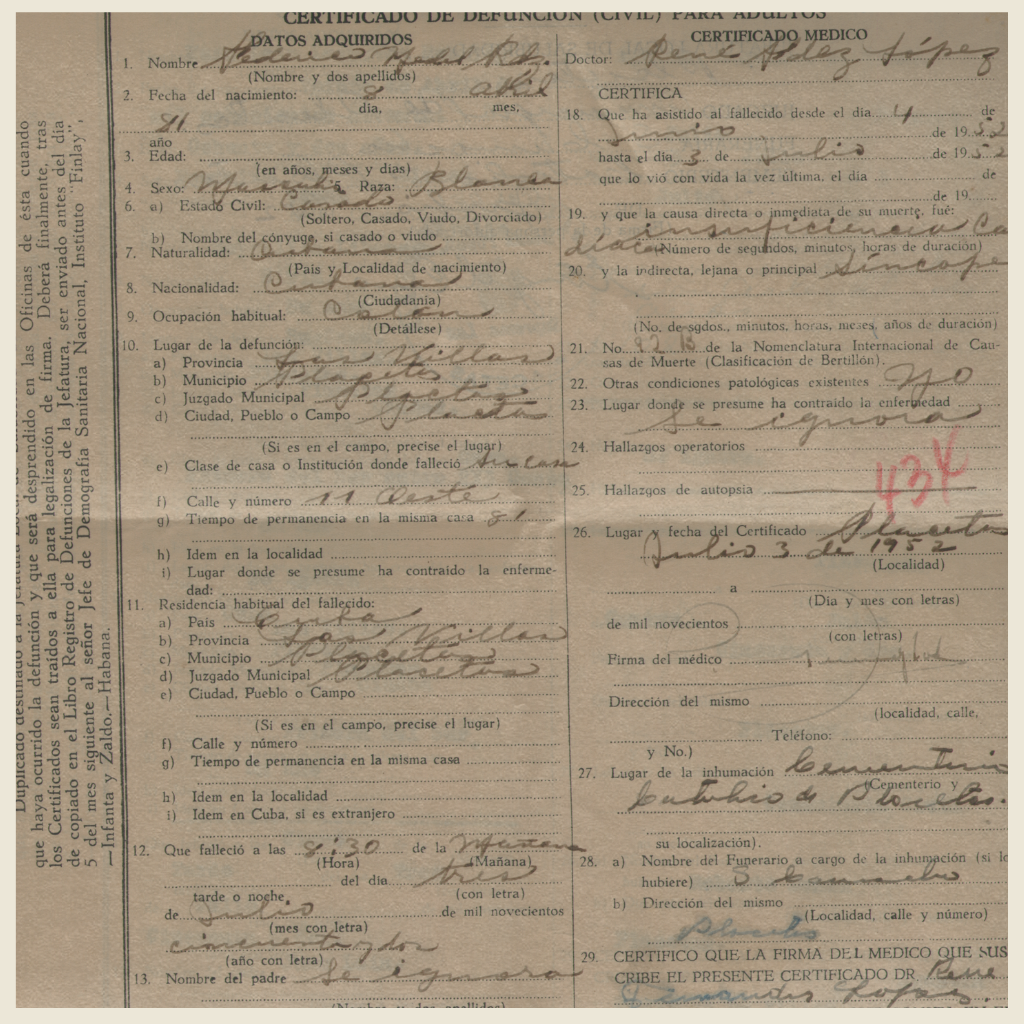 CERTIFICADO DE DEFUNCION (CIVIL) PARA ADULTOS
DATOS ADQUIRIDOS
1. Nombre Federico Medel Rdz.
(Nombre y dos apellidos)
2. Fecha del nacimiento: 8 abril
día, mes,
81
año
3. Edad:
(en años, meses y días)
4. Sexo: Raza: Blanca
6. a) Estado Civil: Casado
(Soltero, Casado, Viudo, Divorciado)
b) Nombre del cónyuge, si casado o viudo
7. Naturalidad: Cubana
(País y Localidad de nacimiento)
8. Nacionalidad: Cubana
(Ciudadanía)
9. Ocupación habitual:
(Detállese)
10. Lugar de la defunción:
a) Provincia Las Villas
b) Municipio Placetas
c) Juzgado Municipal Placetas
d) Ciudad, Pueblo o Campo Placetas
(Si es en el campo, precise el lugar)
e) Clase de casa o Institución donde falleció su casa
f) Calle y número 11 Oeste
g) Tiempo de permanencia en la misma casa 81
h) Idem en la localidad
i) Lugar donde se presume ha contraído la enferme-
dad:
11. Residencia habitual del fallecido:
a) País Cuba
b) Provincia Las Villas
c) Municipio Placetas
d) Juzgado Municipal Placetas
e) Ciudad, Pueblo o Campo
(Si es en el campo, precise el lugar)
f) Calle y número
g) Tiempo de permanencia en la misma casa
h) Idem en la localidad
i) Idem en Cuba, si es extranjero
12. Que falleció a las 8:30 de la Mañana
(Hora) (Mañana)
del día tres
tarde o noche, (con letra)
de Julio de mil novecientos
(mes con letra)
cincuenta y dos
(año con letra)
13. Nombre del padre Se ignora
(Nombre y dos apellidos)
CERTIFICADO MEDICO
Doctor: René López
CERTIFICA
18. Que ha asistido al fallecido desde el día 4 de
Junio de 1952
hasta el día 3 de Julio de 1952
que lo vió con vida la vez última, el día de
de 19
19. y que la causa directa o inmediata de su muerte, fué:
insuficiencia Ca
diaca (Número de segundos, minutos, horas de duración)
20. y la indirecta, lejana o principal Síncope
(No. de sgdos., minutos, horas, meses, años de duración)
21. No. de la Nomenclatura Internacional de Cau-
sas de Muerte (Clasificación de Bertillón).
22. Otras condiciones patológicas existentes No
23. Lugar donde se presume ha contraído la enfermedad
se ignora
24. Hallazgos operatorios
434
25. Hallazgos de autopsia
26. Lugar y fecha del Certificado Placetas
Julio 3 de 1952
(Localidad)
a
(Día y mes con letras)
de mil novecientos
(con letras)
Firma del médico
Dirección del mismo
(localidad, calle,
Teléfono:
y No.)
27. Lugar de la inhumación Cementerio
(Cementerio y
de Placetas.
su localización).
28. a) Nombre del Funerario a cargo de la inhumación (si lo
hubiere) S Camacho
b) Dirección del mismo
(Localidad, calle y número)
Placetas
29. CERTIFICO QUE LA FIRMA DEL MEDICO QUE SUS
CRIBE EL PRESENTE CERTIFICADO DR Rene
Fernandez Lopez.
que haya ocurrido la defunción y que será desprendido, en las Oficinas de ésta cuando
los Certificados sean traídos a ella para legalización de firma. Deberá finalmente, tras
de copiado en el Libro Registro de Defunciones de la Jefatura, ser enviado antes del día
5 del mes siguiente al señor Jefe de Demografía Sanitaria Nacional, Instituto "Finlay",
—Infanta y Zaldo.—Habana.